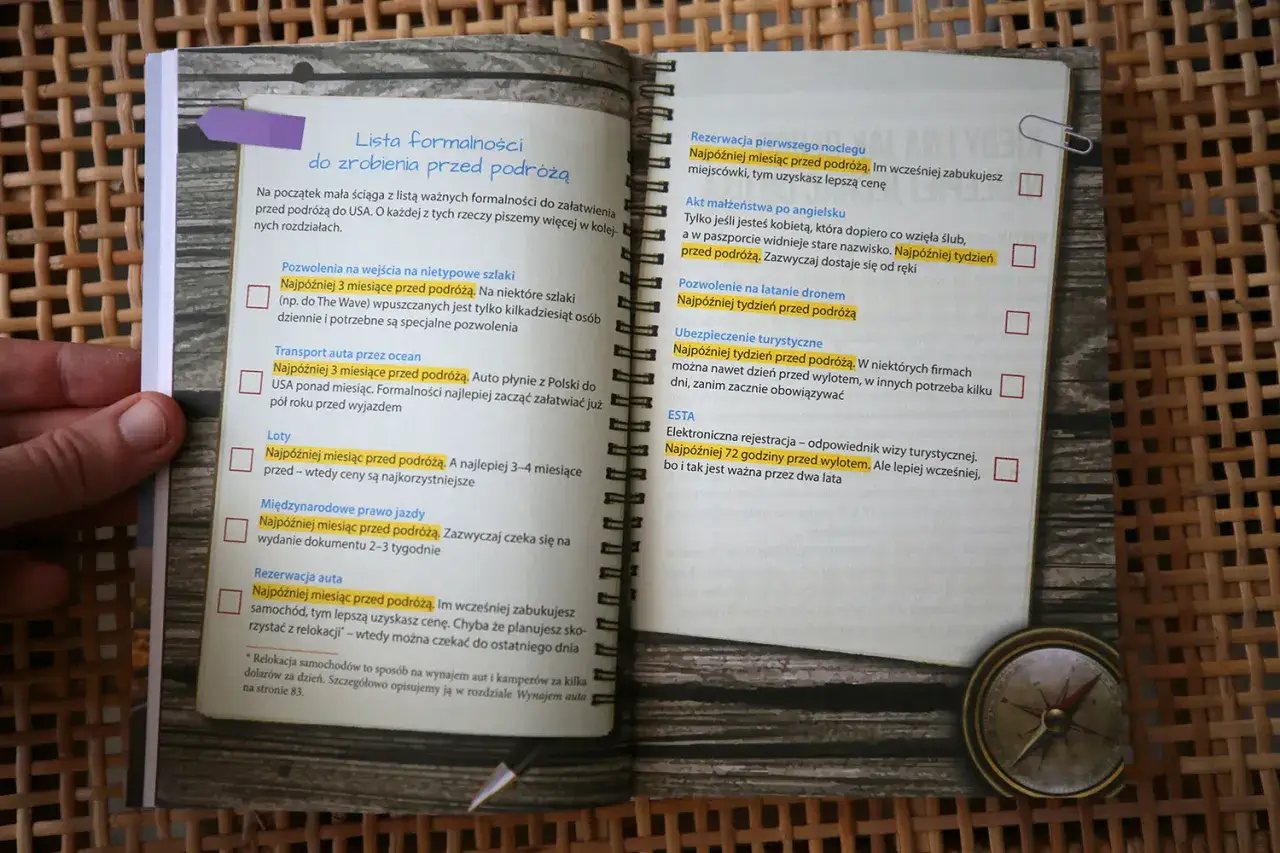 Lista formalności
do zrobienia przed podróżą
Na początek mała ściąga z listą ważnych formalności do załatwienia
przed podróżą do USA. O każdej z tych rzeczy piszemy więcej w kolej-
nych rozdziałach.
Pozwolenia na wejścia na nietypowe szlaki
Najpóźniej 3 miesiące przed podróżą. Na niektóre szlaki
(np. do The Wave) wpuszczanych jest tylko kilkadziesiąt osób
dziennie i potrzebne są specjalne pozwolenia
Transport auta przez ocean
Najpóźniej 3 miesiące przed podróżą. Auto płynie z Polski do
USA ponad miesiąc. Formalności najlepiej zacząć załatwiać już
pół roku przed wyjazdem
Loty
Najpóźniej miesiąc przed podróżą. A najlepiej 3–4 miesiące
przed – wtedy ceny są najkorzystniejsze
Międzynarodowe prawo jazdy
Najpóźniej miesiąc przed podróżą. Zazwyczaj czeka się na
wydanie dokumentu 2–3 tygodnie
Rezerwacja auta
Najpóźniej miesiąc przed podróżą. Im wcześniej zabukujesz
samochód, tym lepszą uzyskasz cenę. Chyba że planujesz sko-
rzystać z relokacji* – wtedy można czekać do ostatniego dnia
* Relokacja samochodów to sposób na wynajem aut i kamperów za kilka
dolarów za dzień. Szczegółowo opisujemy ją w rozdziale Wynajem auta
na stronie 83.
Rezerwacja pierwszego noclegu
Najpóźniej miesiąc przed podróżą. Im wcześniej zabukujesz
miejscówki, tym uzyskasz lepszą cenę
Akt małżeństwa po angielsku
Tylko jeśli jesteś kobietą, która dopiero co wzięła ślub,
a w paszporcie widnieje stare nazwisko. Najpóźniej tydzień
przed podróżą. Zazwyczaj dostaje się od ręki
Pozwolenie na latanie dronem
Najpóźniej tydzień przed podróżą
Ubezpieczenie turystyczne
Najpóźniej tydzień przed podróżą. W niektórych firmach
można nawet dzień przed wylotem, w innych potrzeba kilku
dni, zanim zacznie obowiązywać
ESTA
Elektroniczna rejestracja – odpowiednik wizy turystycznej.
Najpóźniej 72 godziny przed wylotem. Ale lepiej wcześniej,
bo i tak jest ważna przez dwa lata